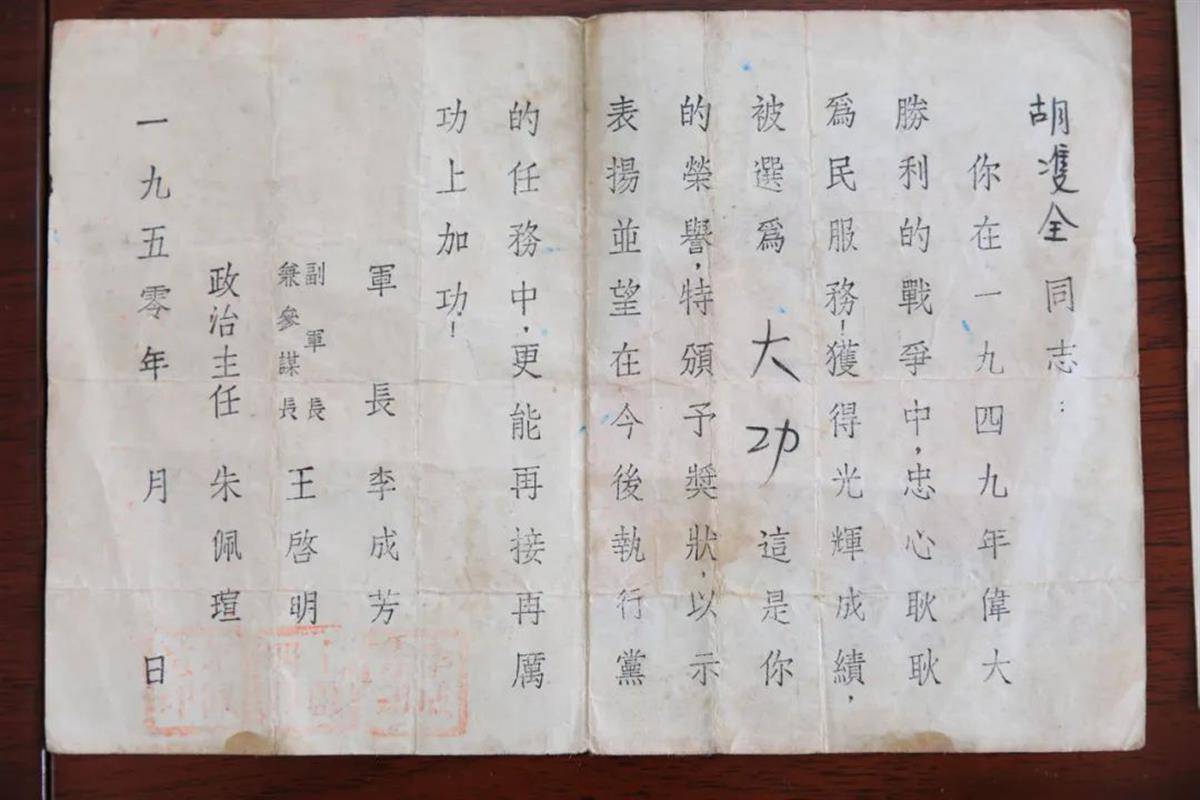 胡雙全同志：
你在一九四九年偉大
勝利的戰爭中，忠心耿耿
爲民服務！獲得光輝成績，
被選爲大功這是你
的榮譽，特頒予獎狀，以示
表揚並望在今後執行黨
的任務中，更能再接再厲
功上加功！
軍長李成芳
副軍長
兼參謀長王啓明
政治主任朱佩瑄
一九五零年月日